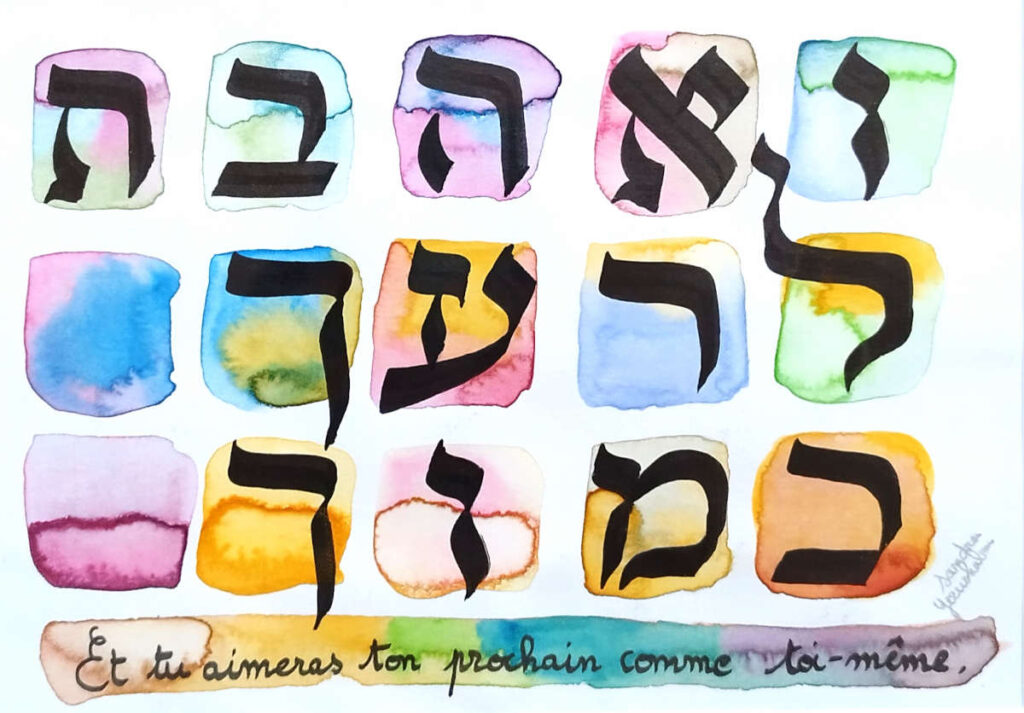 ואהבת
לרעך
כמוך
Et tu aimeras ton prochain comme toi-même.